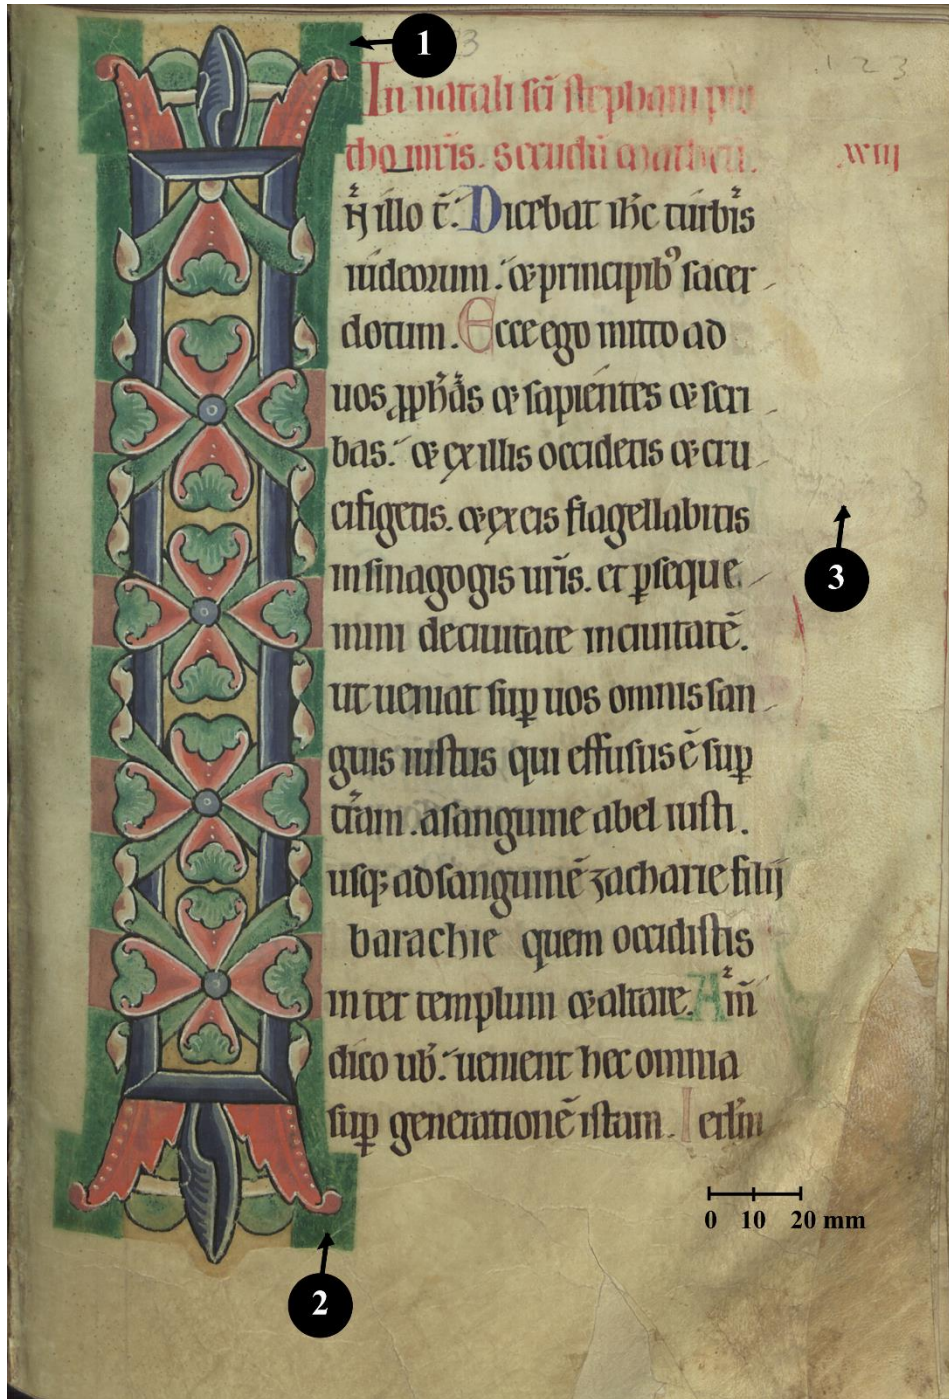 1
3
123
In natali sči stephani pro
tho mr̃is. Secundū matheū.
xviij
N illo t̄. Dicebat ih̄c turbis
iudeorum. & principib⁹ sacer
dotum. Ecce ego mitto ad
uos ꝓph̄as & sapientes & scri
bas. & ex illis occidetis & cru
cifigetis. & ex eis flagellabitis
in sinagogis ur̃is. et ꝑseque
mini deciuitate inciuitatē.
ut ueniat suꝑ uos omnis san
guis iustus qui effusus ē suꝑ
tr̃am. asanguine abel iusti.
usq; adsanguinē zacharie filij
barachie quem occidistis
inter templum & altare. Am̄
dico ub̄. uenient hec omnia
suꝑ generationē istam. Ierl̄m
3
2
0 10 20 mm